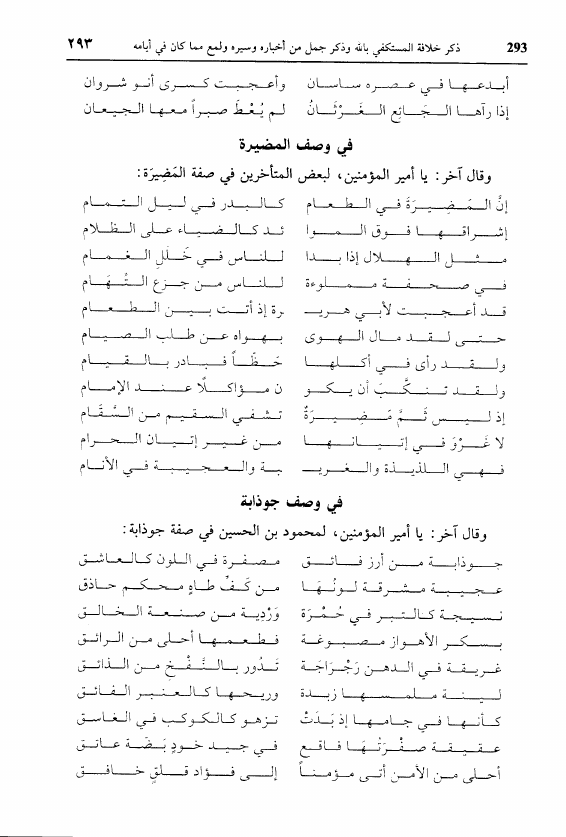 293 ذكر خلافة المستكفي بالله وذكر جمل من أخباره وسيره ولمع مما كان في أيامه ٢٩٣
أبدعها في عصره ساسان وأعجبت كسرى أنو شروان
إذا رآها الجَائع الغَرْثَانُ لم يُعْطَ صبراً معها الجيعان
في وصف المضيرة
وقال آخر: يا أمير المؤمنين، لبعض المتأخرين في صفة المَضِيرَة:
إنَّ المَضِيرَةَ في الطعام كالبدر في ليل التمام
إشراقها فوق الموا ئد كالضياء على الظلام
مثل الهلال إذا بدا للناس في خَلَلِ الغمام
في صحفة مملوءة للناس من جزع التِّهَام
قد أعجبت لأبي هريـ ـرة إذ أتت بين الطعام
حتى لقد مال الهوى بهواه عن طلب الصيام
ولقد رأى في أكلها حَظّاً فبادر بالقيام
ولقد تنكَّبَ أن يكو ن مؤاكلًا عند الإمام
إذ ليس ثَمَّ مَضِيرَةٌ تشفي السقيم من السَّقَام
لا غَرْوَ في إتيانها من غير إتيان الحرام
فهي اللذيذة والغريـ ـبة والعجيبة في الأنام
في وصف جوذابة
وقال آخر: يا أمير المؤمنين، لمحمود بن الحسين في صفة جوذابة:
جوذابة من أرز فائق مصفرة في اللون كالعاشق
عجيبة مشرقة لونُهَا من كَفِّ طاهٍ محكم حاذق
نسيجة كالتبر في حُمْرَة وَرْدِية من صنعة الخالق
بسكر الأهواز مصبوغة فطعمها أحلى من الرائق
غريقة في الدهن رَجْرَاجَة تَدُور بالنَّفْخ من الذائق
لينة ملمسها زبدة وريحها كالعنبر الفائق
كأنها في جامها إذ بَدَتْ تزهو كالكوكب في الغاسق
عقيقة صفْرَتُهَا فاقع في جيد خودٍ بَضَّة عاتق
أحلى من الأمن أتى مؤمناً إلى فؤاد قلقٍ خافق